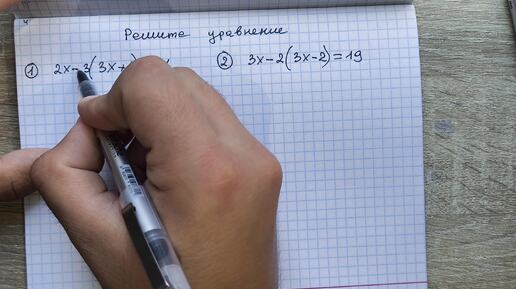 Решите уравнение
① 2x-3(3x+
② 3x-2(3x-2)=19